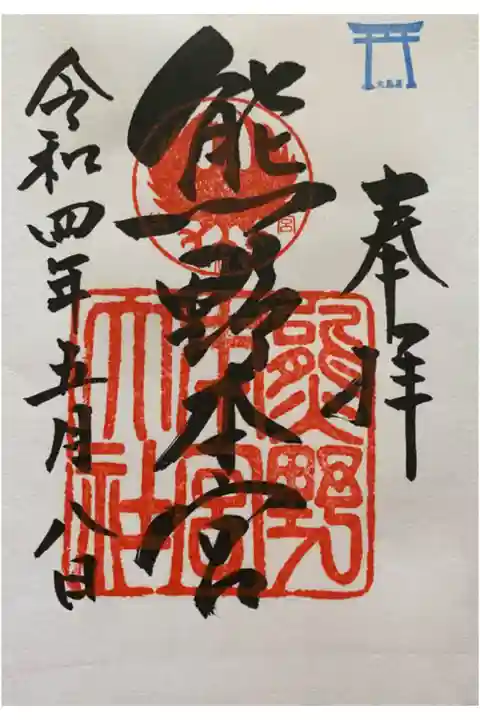 奉拝
熊野本宮
令和四年五月八日
大鳥居
宮
熊野
本宮
大社